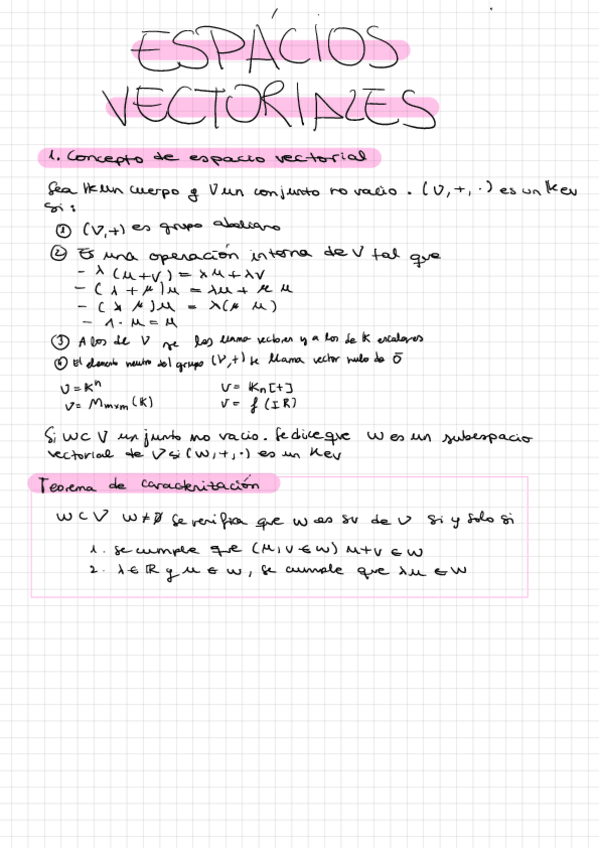 ESPÁCIOS
VECTORIALES
1. Concepto de espacio vectorial
Sea K un cuerpo y V un conjunto no vacio. (V,+,·) es un Kev
si:
① (V,+) es grupo abeliano
② Es una operación interna de V tal que
- λ (μ+v) = λμ+λv
- (λ+μ)μ = λμ+ μ μ
- (λ μ)μ = λ(μ μ)
- 1·μ=μ
③ A los de V se les llama vectores y a los de K escalares
④ El elemento neutro del grupo (V,+) se llama vector nulo do ō
V=Kⁿ V= Kn[t]
V= Mmxm(K) V= f(IR)
Si WCV un junto no vacio. Se dice que W es un subespacio
vectorial de V si (W,+,·) es un Kev
Teorema de caracterización
WCV W≠∅ se verifica que W es sv de V si y solo si
1. se cumple que (μ,v∈W) μ+v∈W
2. λ∈R y μ∈W, se cumple que λμ∈W